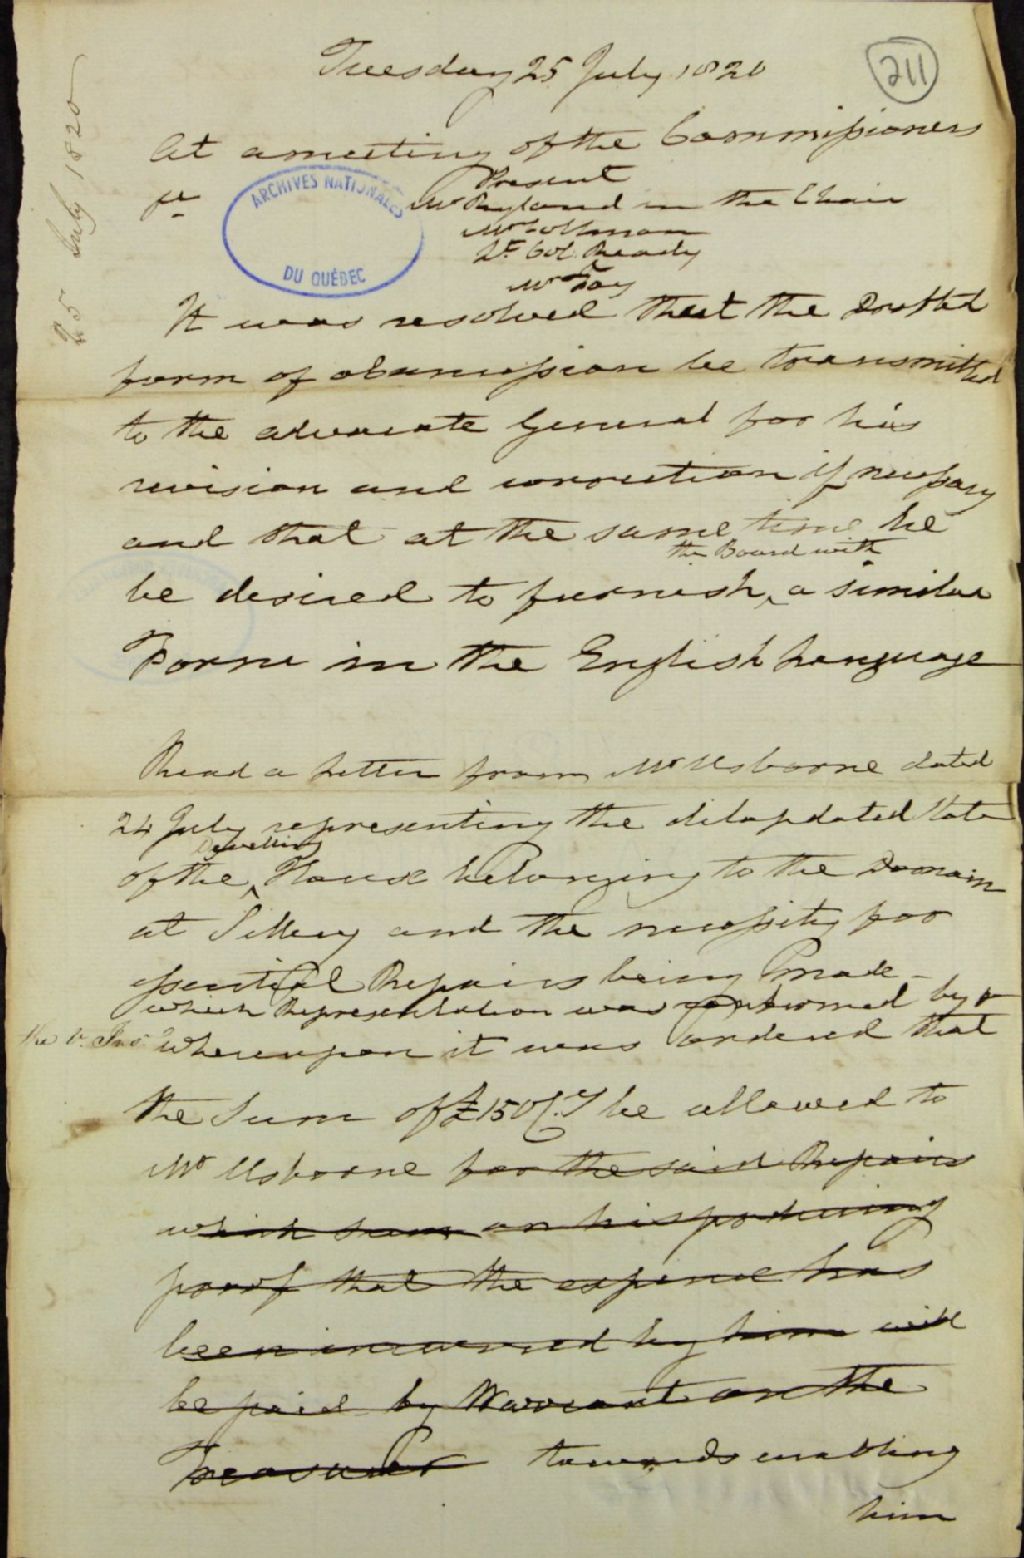 211
Tuesday 25 July 1820
25 July 1820
At a meeting of the Commissioners
&c
Present
Mr Ryland in the Chair
Mr Coltman
Lt Col. Ready
Mr Foy
ARCHIVES NATIONALES
DU QUÉBEC
It was resolved that the
form of a Concession be transmitted
to the Advocate General for his
revision and correction if necessary
and that at the same time he
the Board with
be desired to furnish ^ a similar
Form in the English Language
Read a Letter from Mr Usborne dated
24 July representing the dilapidated State
Dwelling
of the ^ House belonging to the Domain
at Sillery and the necessity for
essential Repairs being made -
which Representation was confirmed by
the
whereupon it was ordered that
the Sum of £150 Cy be allowed to
Mr Usborne for the said Repairs
which sum on his producing
proof that the expense has
been incurred by him will
be paid by Warrant on the
Treasurer towards enabling
him